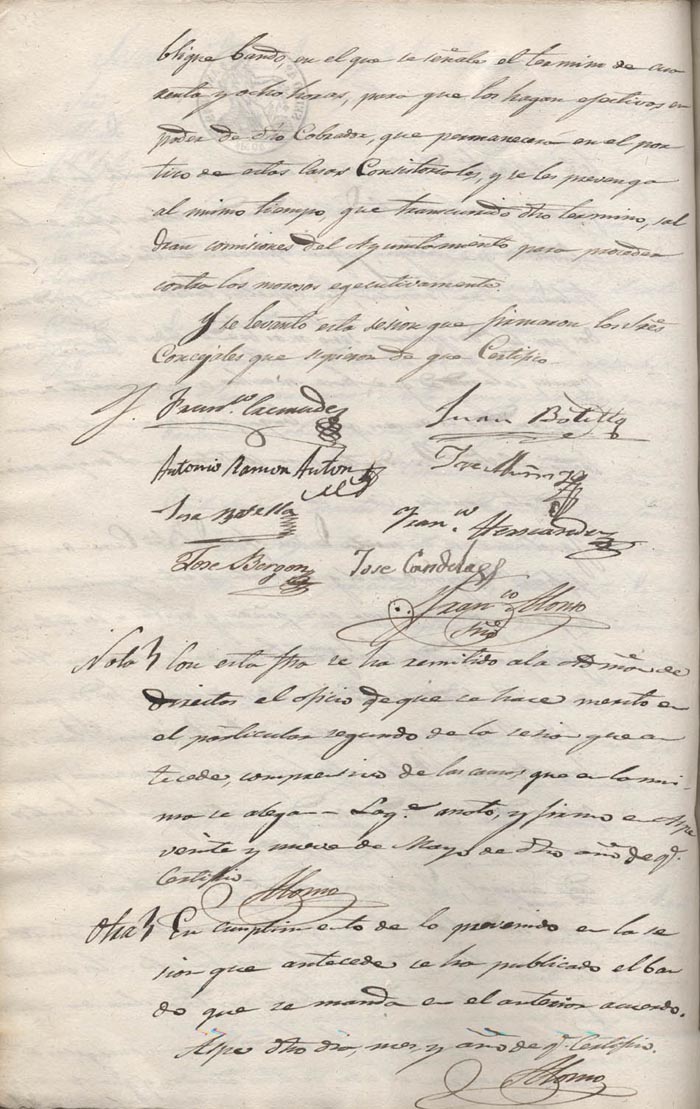 blique bando en el que se señale el termino de cua
renta y ocho horas, para que los hagan efectivos en
poder de dho Cobrador, que permanecerá en el por
tico de estas Casas Consistoriales, y se les prevenga
al mismo tiempo, que transcurrido dho termino, sal
dran comisiones del Ayuntamiento para proceder
contra los morosos egecutivamente.
Y se levantó esta sesion que firmaron los Sres
Concejales que supieron de que Certifico.
Franco
Juan Botella
Antonio Ramon Anton
Jose Muñoz
Jose Botella
Franco Hernandez
Jose Borgon
Jose Candela
Franco Alonso
Srio
Nota Con esta fha se ha remitido a la Admon de
Directos el oficio de que se hace merito en
el particular segundo de la sesion que an
tecede, comprensivo de las causas que en la mis-
ma se alegan. Lo q.e anoto, y firmo en Aspe
veinte y nueve de Mayo de dho año de q.
Certifico.
Alonso
Otra En cumplimiento de lo prevenido en la se
sion que antecede se ha publicado el ban
do que se manda en el anterior acuerdo.
Aspe dho dia, mes, y año de q. Certifico.
Alonso